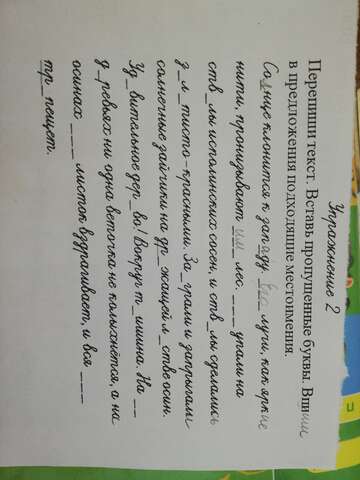 Упражнение 2
Перепиши текст. Вставь пропущенные буквы. Впиши
в предложения подходящие местоимения.
Солнце клонится к западу. Его лучи, как яркие
нити, пронизывают им лес. ____ упали на
ств_лы исполинских сосен, и ств_лы сделались
з_л_тисто-красными. За_грали и запрыгали
солнечные зайчики на др_жащей л_стве осин.
Уд_вительное дер_во! Вокруг т_ишина. На __
д_ревьях ни одна веточка не колыхнётся, а на
осинах ____ листок вздрагивает, и вся ____
тр_пещет.